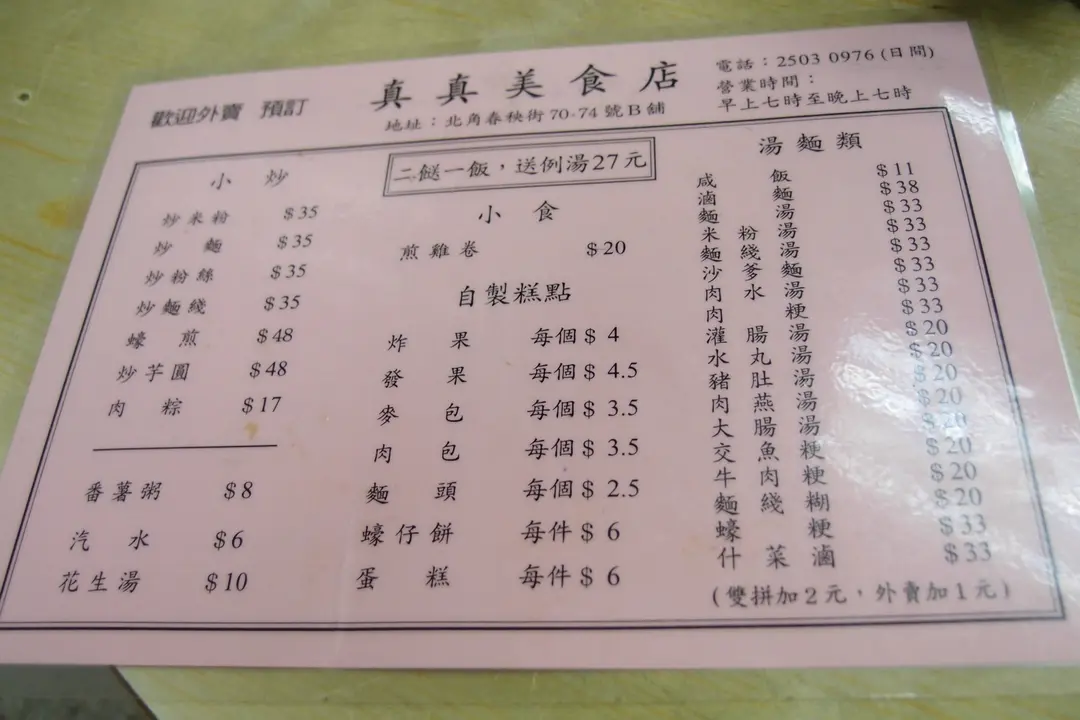 歡迎外賣 預訂
真真美食店
地址：北角春秧街70-74號B舖
電話：2503 0976 (日間)
營業時間：
早上七時至晚上七時
小炒
炒米粉 $35
炒麵 $35
炒粉絲 $35
炒麵綫 $35
蠔煎 $48
炒芋圓 $48
肉粽 $17
番薯粥 $8
汽水 $6
花生湯 $10
二餸一飯，送例湯27元
小食
煎雞卷 $20
自製糕點
炸果 每個 $ 4
發果 每個 $ 4.5
麥包 每個 $ 3.5
肉包 每個 $ 3.5
麵頭 每個 $ 2.5
蠔仔餅 每件 $ 6
蛋糕 每件 $ 6
湯麵類
咸飯 $11
滷麵 $38
麵湯 $33
米粉湯 $33
麵綫湯 $33
沙爹麵 $33
肉水湯 $33
肉粳 $33
灌腸湯 $20
水丸湯 $20
豬肚湯 $20
肉燕湯 $20
大腸湯 $20
交魚粳 $20
牛肉粳 $20
麵綫糊 $20
蠔粳 $33
什菜滷 $33
(雙拼加2元，外賣加1元)